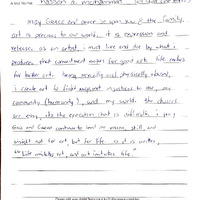 Hassan A. Muhammad
May Grace and peace be upon you & the family.
art is precious to our world. it is expression and
release. as an artist, i must live and die by what i
produce. that commitment makes for good art. life makes
for better art. being mentally and physically abused,
i create art to fight misjust injustices to me, my
community (humanity), and my world. the choices
are easy, its the execution that is difficult. i pray
Grace and Guidance continue to lend me vision, skill, and
insight not for art, but for life. as it is written,
"Life imitates art, and art imitates life."